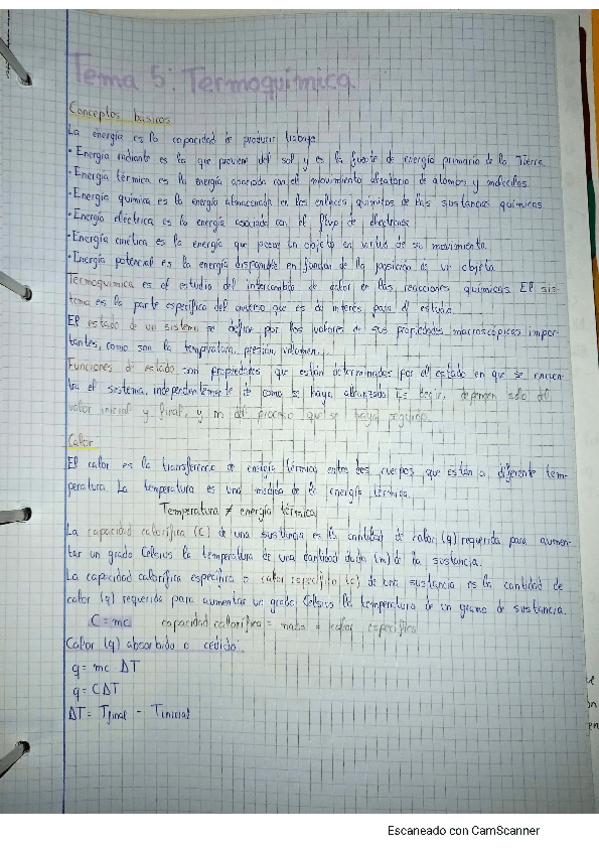 Tema 5: Termoquímica
Conceptos básicos
La energía es la capacidad de producir trabajo
• Energía radiante es la que proviene del sol y es la fuente de energía primaria de la Tierra
• Energía térmica es la energía asociada con el movimiento aleatorio de átomos y moléculas
• Energía química es la energía almacenada en los enlaces químicos de las sustancias químicas
• Energía eléctrica es la energía asociada con el flujo de electrones
• Energía cinética es la energía que posee un objeto en virtud de su movimiento.
• Energía potencial es la energía disponible en función de la posición de un objeto
Termoquímica es el estudio del intercambio de calor en las reacciones químicas. El sis-
tema es la parte específica del universo que es de interés para el estudio.
El estado de un sistema se define por los valores de sus propiedades macroscópicas impor-
tantes, como son la temperatura, presión, volumen...
Funciones de estado son propiedades que están determinadas por el estado en que se encuen-
tra el sistema, independientemente de como se haya alcanzado. Es decir, dependen solo del
valor inicial y final, y no del proceso que se haya seguido.
Calor
El calor es la transferencia de energía térmica entre dos cuerpos que están a diferente tem-
peratura. La temperatura es una medida de la energía térmica.
Temperatura ≠ energía térmica
La capacidad calorífica (C) de una sustancia es la cantidad de calor (q) requerida para aumen-
tar un grado Celsius la temperatura de una cantidad dada (m) de la sustancia.
La capacidad calorífica específica o calor específico (c) de una sustancia es la cantidad de
calor (q) requerida para aumentar un grado Celsius la temperatura de un gramo de sustancia.
C = mc capacidad calorífica = masa * calor específico
Calor (q) absorbido o cedido
q = mc ΔT
q = CΔT
ΔT = Tfinal - Tinicial
Escaneado con CamScanner